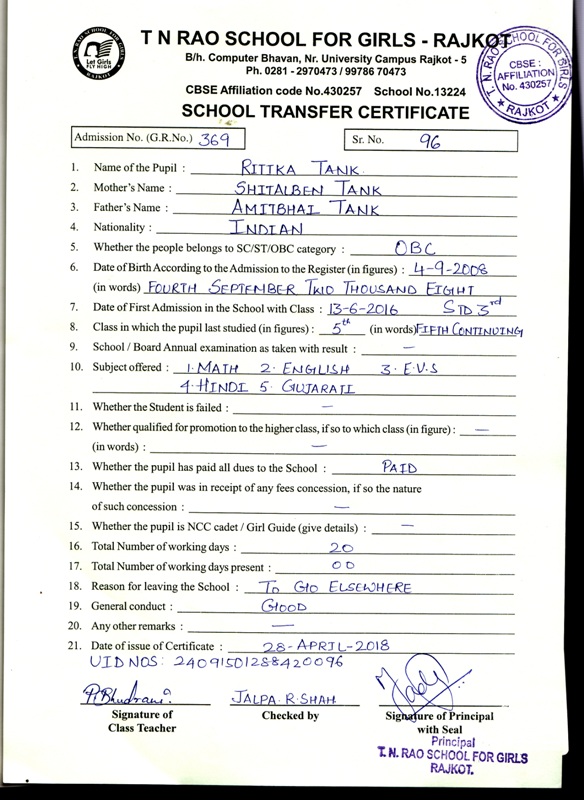 T N RAO SCHOOL FOR GIRLS - RAJKOT
Let Girls
FLY HIGH
RAJKOT
T. N. RAO SCHOOL FOR GIRLS
CBSE :
AFFILIATION
No. 430257
★ RAJKOT ★
B/h. Computer Bhavan, Nr. University Campus Rajkot - 5
Ph. 0281 - 2970473 / 99786 70473
CBSE Affiliation code No.430257 School No.13224
SCHOOL TRANSFER CERTIFICATE
Admission No. (G.R.No.) 369 Sr. No. 96
1. Name of the Pupil : RITIKA TANK
2. Mother's Name : SHITALBEN TANK
3. Father's Name : AMITBHAI TANK
4. Nationality : INDIAN
5. Whether the people belongs to SC/ST/OBC category : OBC
6. Date of Birth According to the Admission to the Register (in figures) : 4-9-2008
(in words) FOURTH SEPTEMBER TWO THOUSAND EIGHT
7. Date of First Admission in the School with Class : 13-6-2016 STD 3rd
8. Class in which the pupil last studied (in figures) : 5th (in words) FIFTH CONTINUING
9. School / Board Annual examination as taken with result : —
10. Subject offered : 1. MATH 2. ENGLISH 3. E.V.S
4. HINDI 5. GUJARATI
11. Whether the Student is failed : —
12. Whether qualified for promotion to the higher class, if so to which class (in figure) : —
(in words) : —
13. Whether the pupil has paid all dues to the School : PAID
14. Whether the pupil was in receipt of any fees concession, if so the nature
of such concession : —
15. Whether the pupil is NCC cadet / Girl Guide (give details) : —
16. Total Number of working days : 20
17. Total Number of working days present : 00
18. Reason for leaving the School : TO GO ELSEWHERE
19. General conduct : GOOD
20. Any other remarks : —
21. Date of issue of Certificate : 28-APRIL-2018
UID NOS: 24091501288420096
JALPA.R.SHAH
Signature of Class Teacher
Checked by
Signature of Principal with Seal
Principal
T. N. RAO SCHOOL FOR GIRLS
RAJKOT.